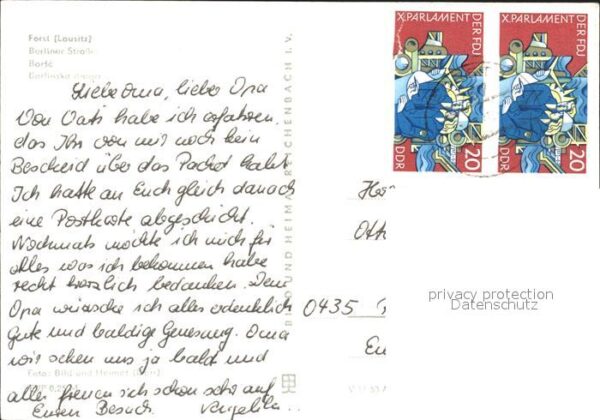 Forst (Lausitz)
Berliner Straße
Barść
Barlińska droga
Liebe Oma, lieber Opa
Von Vati habe ich erfahren,
das Ihr von mir noch kein
Bescheid über das Packet habt.
Ich hatte an Euch gleich danach
eine Postkarte abgeschickt.
Nochmals möchte ich mich für
alles was ich bekommen habe
recht herzlich bedanken. Dem
Opa wünsche ich alles erdenklich
Gute und baldige Genesung. Oma
wir sehen uns ja bald und
alle freuen sich schon sehr auf
Euren Besuch. Angelika
Foto: Bild und Heimat
BILD UND HEIMAT REICHENBACH I. V.
X. PARLAMENT DER FDJ
DDR 20
X. PARLAMENT DER FDJ
DDR 20
Ott
0435
privacy protection
Datenschutz